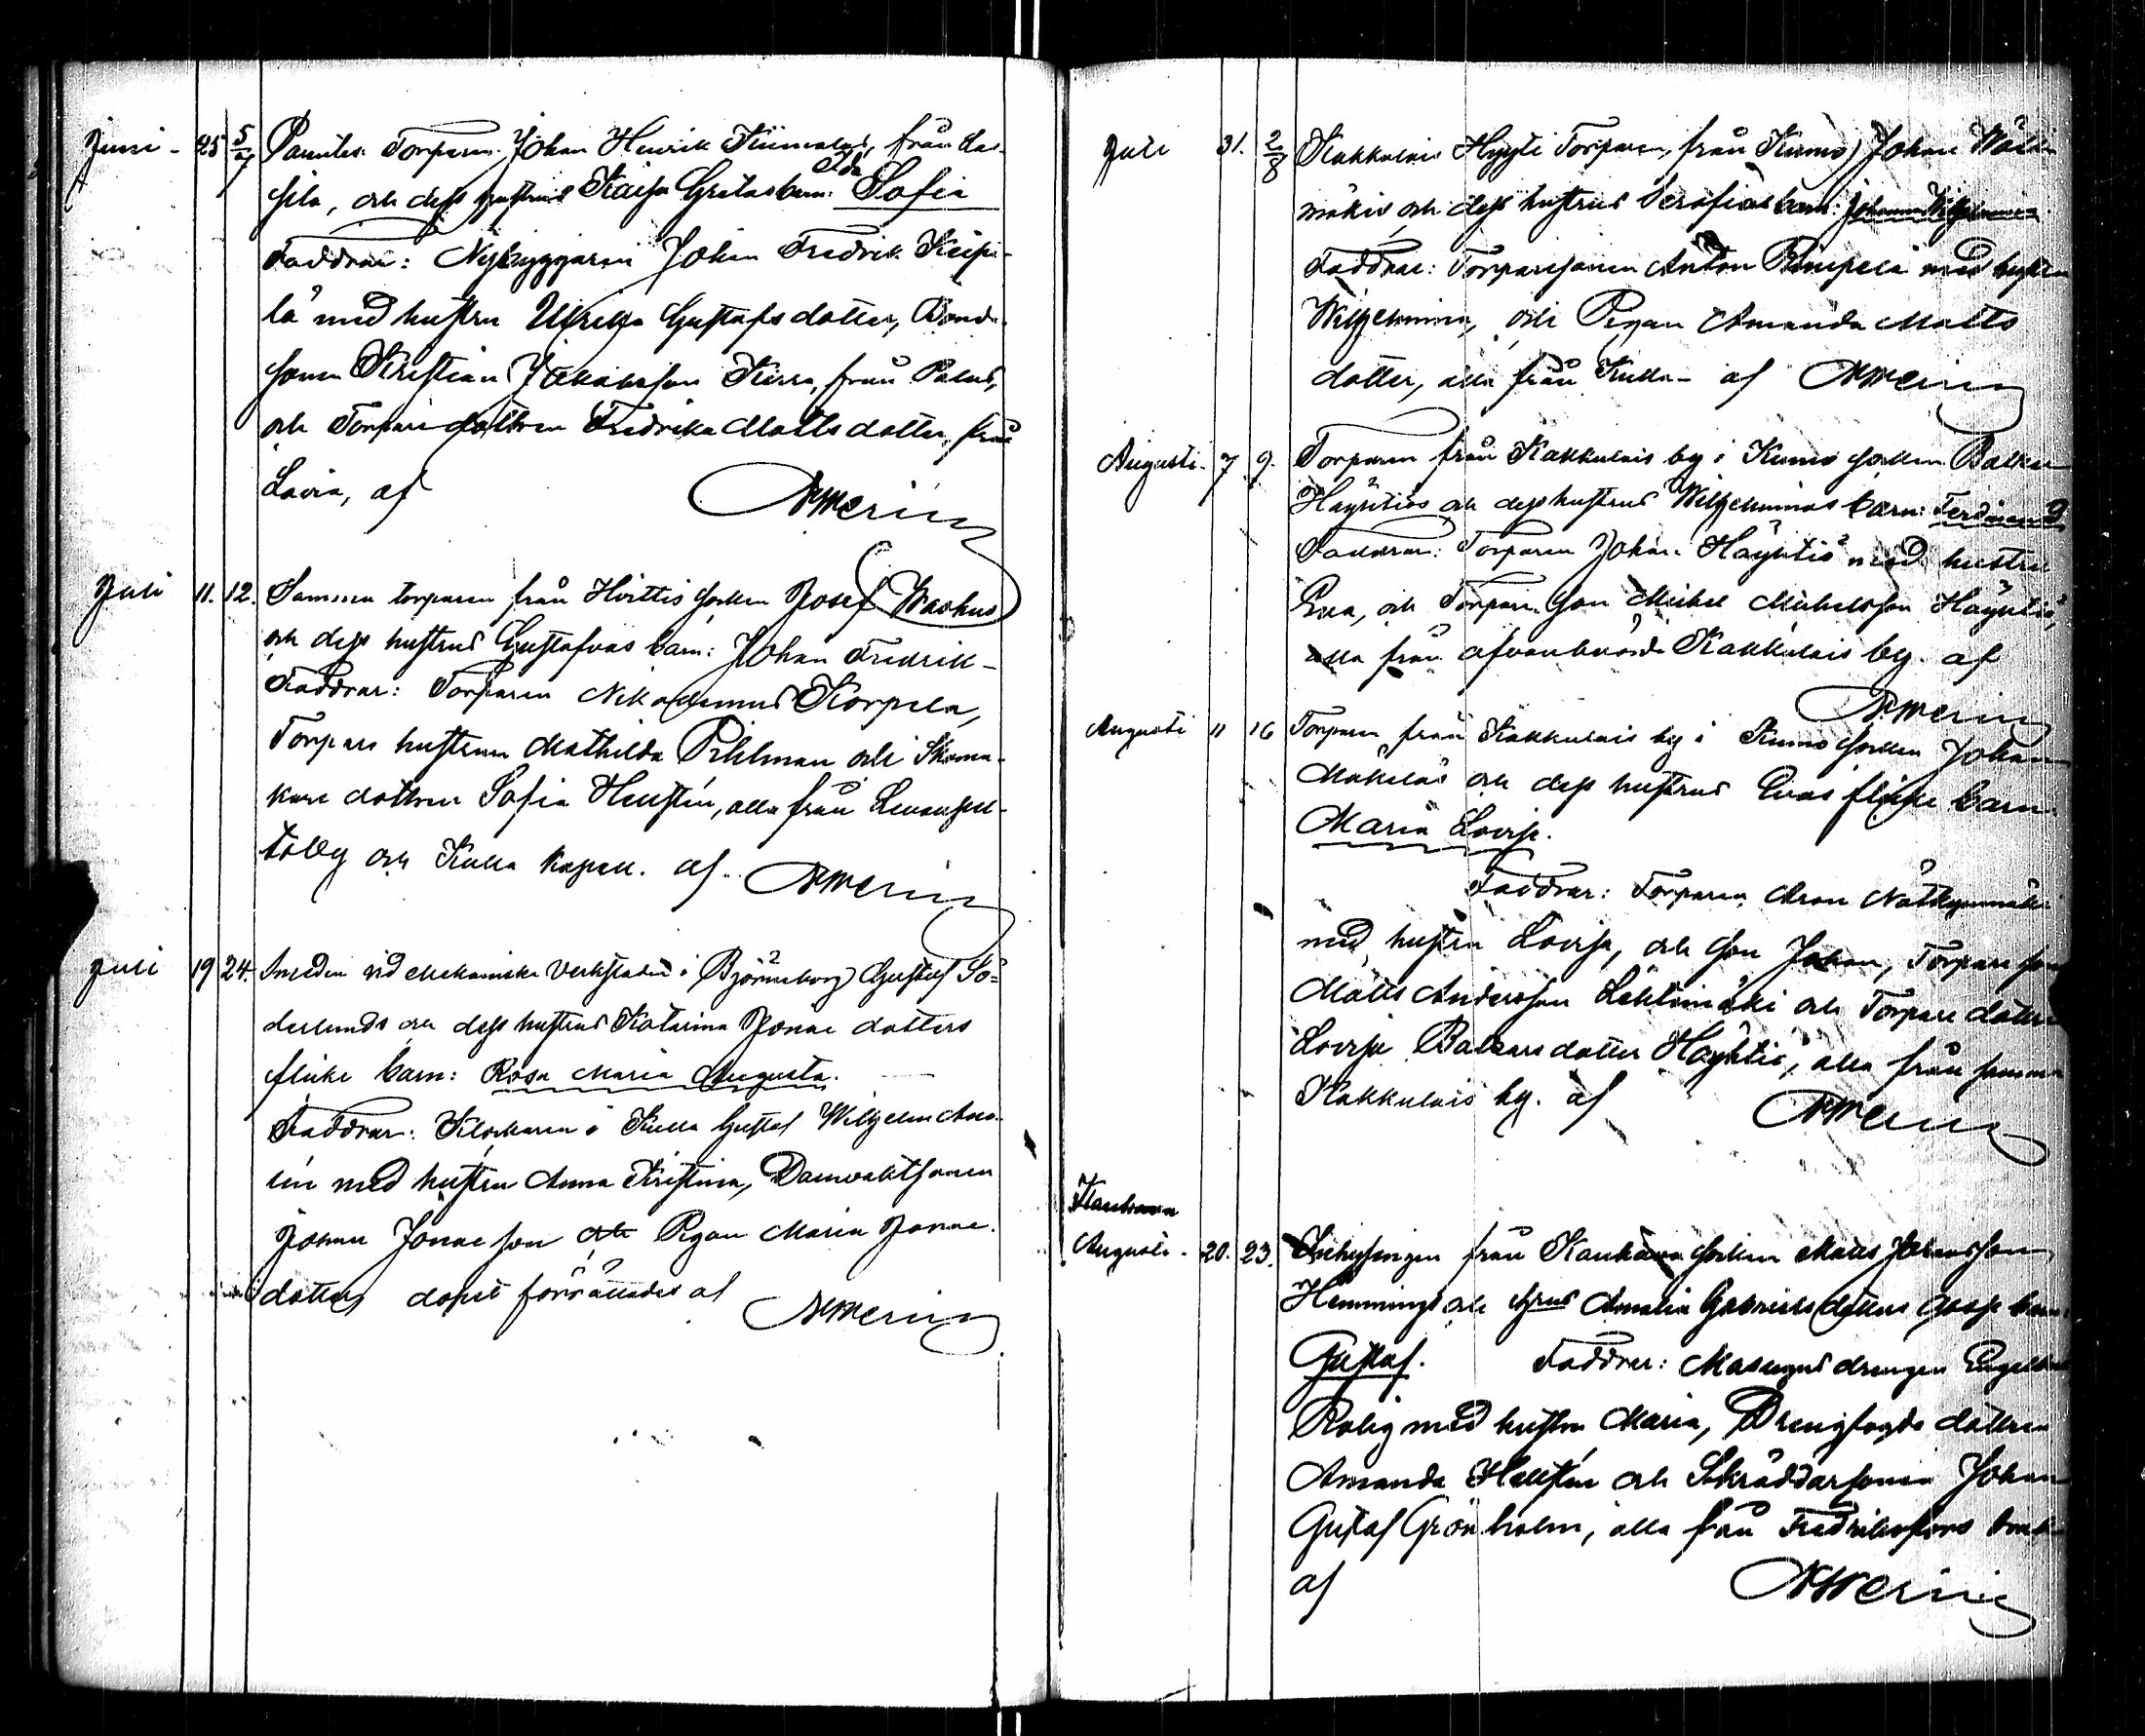 Juni - 25 5/7 Parentes: Torparen Johan Henrik Kiimalas, från Las-
sila, och dess hustrus Kaisa Gretas barn: Ida Sofia
Faddrar: Nybyggaren Johan Fredrik Keipi-
lä med hustru Ulrika Gustafsdotter, Bonde-
sonen Kristian Jakobsson Kirra, från Palus,
och Torparedottren Fredrika Mattsdotter, från
Lavia, af
Juli 11. 12. Samma torparen från Hvittis socken Josef
och dess hustrus Gustafvas barn: Johan Fredrik -
Faddrar: Torparen Nikodemus Korpela,
Torpare hustrun Mathilda Pihlman och Skoma-
kare dottren Sofia Hellstén, alla från
by och Kulla Kapell. af
Juli 19 24. Smeden vid Mekaniska Verkstaden i Björneborg Gustaf Sö-
derlunds och dess hustrus Katarina Jonae dotters
flicke barn: Rosa Maria Augusta.
Faddrar: Klockaren i Kulla Gustaf Wilhelm
med hustru Anna Kristina,
Johan Jonae son och Pigan Maria Jonae
dotter, dopet förrättades af
Juli 31. 2/8 Kakkulais Hyyti Torparen, från Kumo, Johan
mäkis och dess hustrus Serafias barn: Johanna Wilhelmina
Faddrar: Torparesonen Anton Rimpelä med hustru
Wilhelmina, och Pigan Amanda Matts
dotter, alla från Kulla - af
Augusti - 7 9. Torparen från Kakkulais by i Kumo socken
Häyhtiös och dess hustrus Wilhelminas barn: Ferdinand
Faddrar: Torparen Johan Häyhtiö med hustru
Eva, och Torpare son Mickel Mickelsson Häyhtiö,
alla från ofvanberörde Kakkulais by. af
Augusti 11 16 Torparen från Kakkulais by i Kumo socken Johan
Mäkeläs och dess hustrus Evas flicke barn
Maria Lovisa.
Faddrar: Torparen Aron
med hustru Lovisa, och son Johan, Torpare son
Matts Andersson Lehtimäki och Torpare dotter
Lovisa dotter Häyhtiö, alla från samma
Kakkulais by. af
Kauhava
Augusti - 20. 23. Inhysingen från Kauhava socken Matts Johansson
Hemmings och Amalia Gabrielsdotters gosse barn
Gustaf. Faddrar: Masugnsdrengen
Rolig med hustru Maria, Drengfogde dottren
Amanda Hellstén och Skräddarsonen Johan
Gustaf Grönholm, alla från Fredriksfors bruk
af